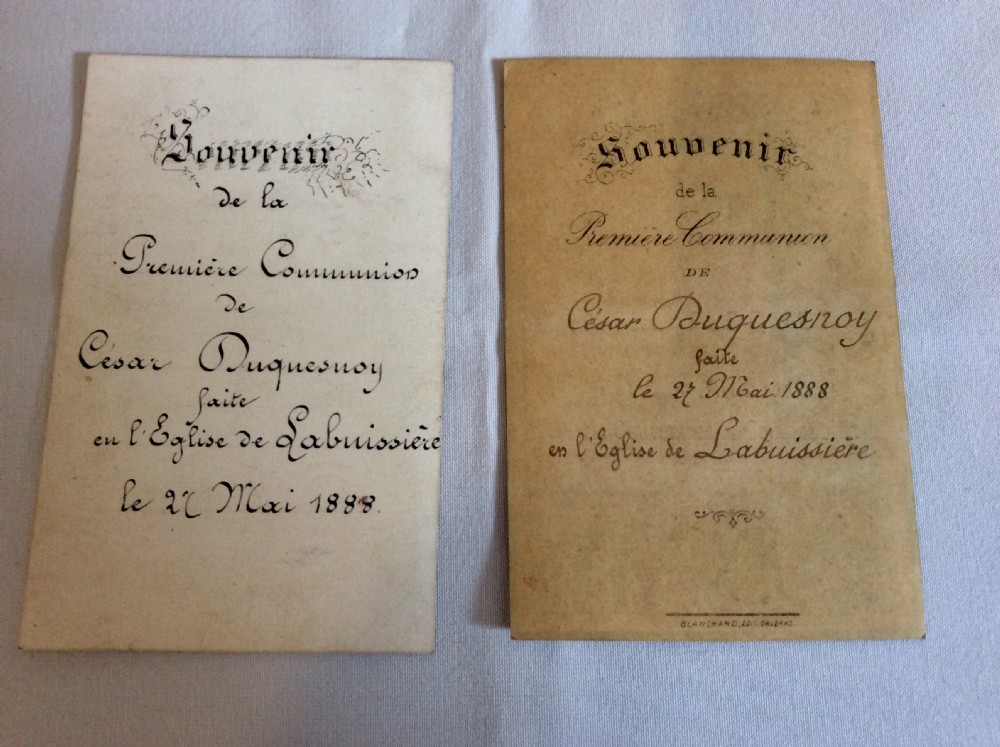 Souvenir
de la
Première Communion
de
César Duquesnoy
faite
en l'Eglise de Labuissière
le 27 Mai 1888.
Souvenir
de la
Première Communion
DE
César Duquesnoy
faite
le 27 Mai 1888
en l'Eglise de Labuissière
BLANCHARD, EDIT. ORLÉANS.